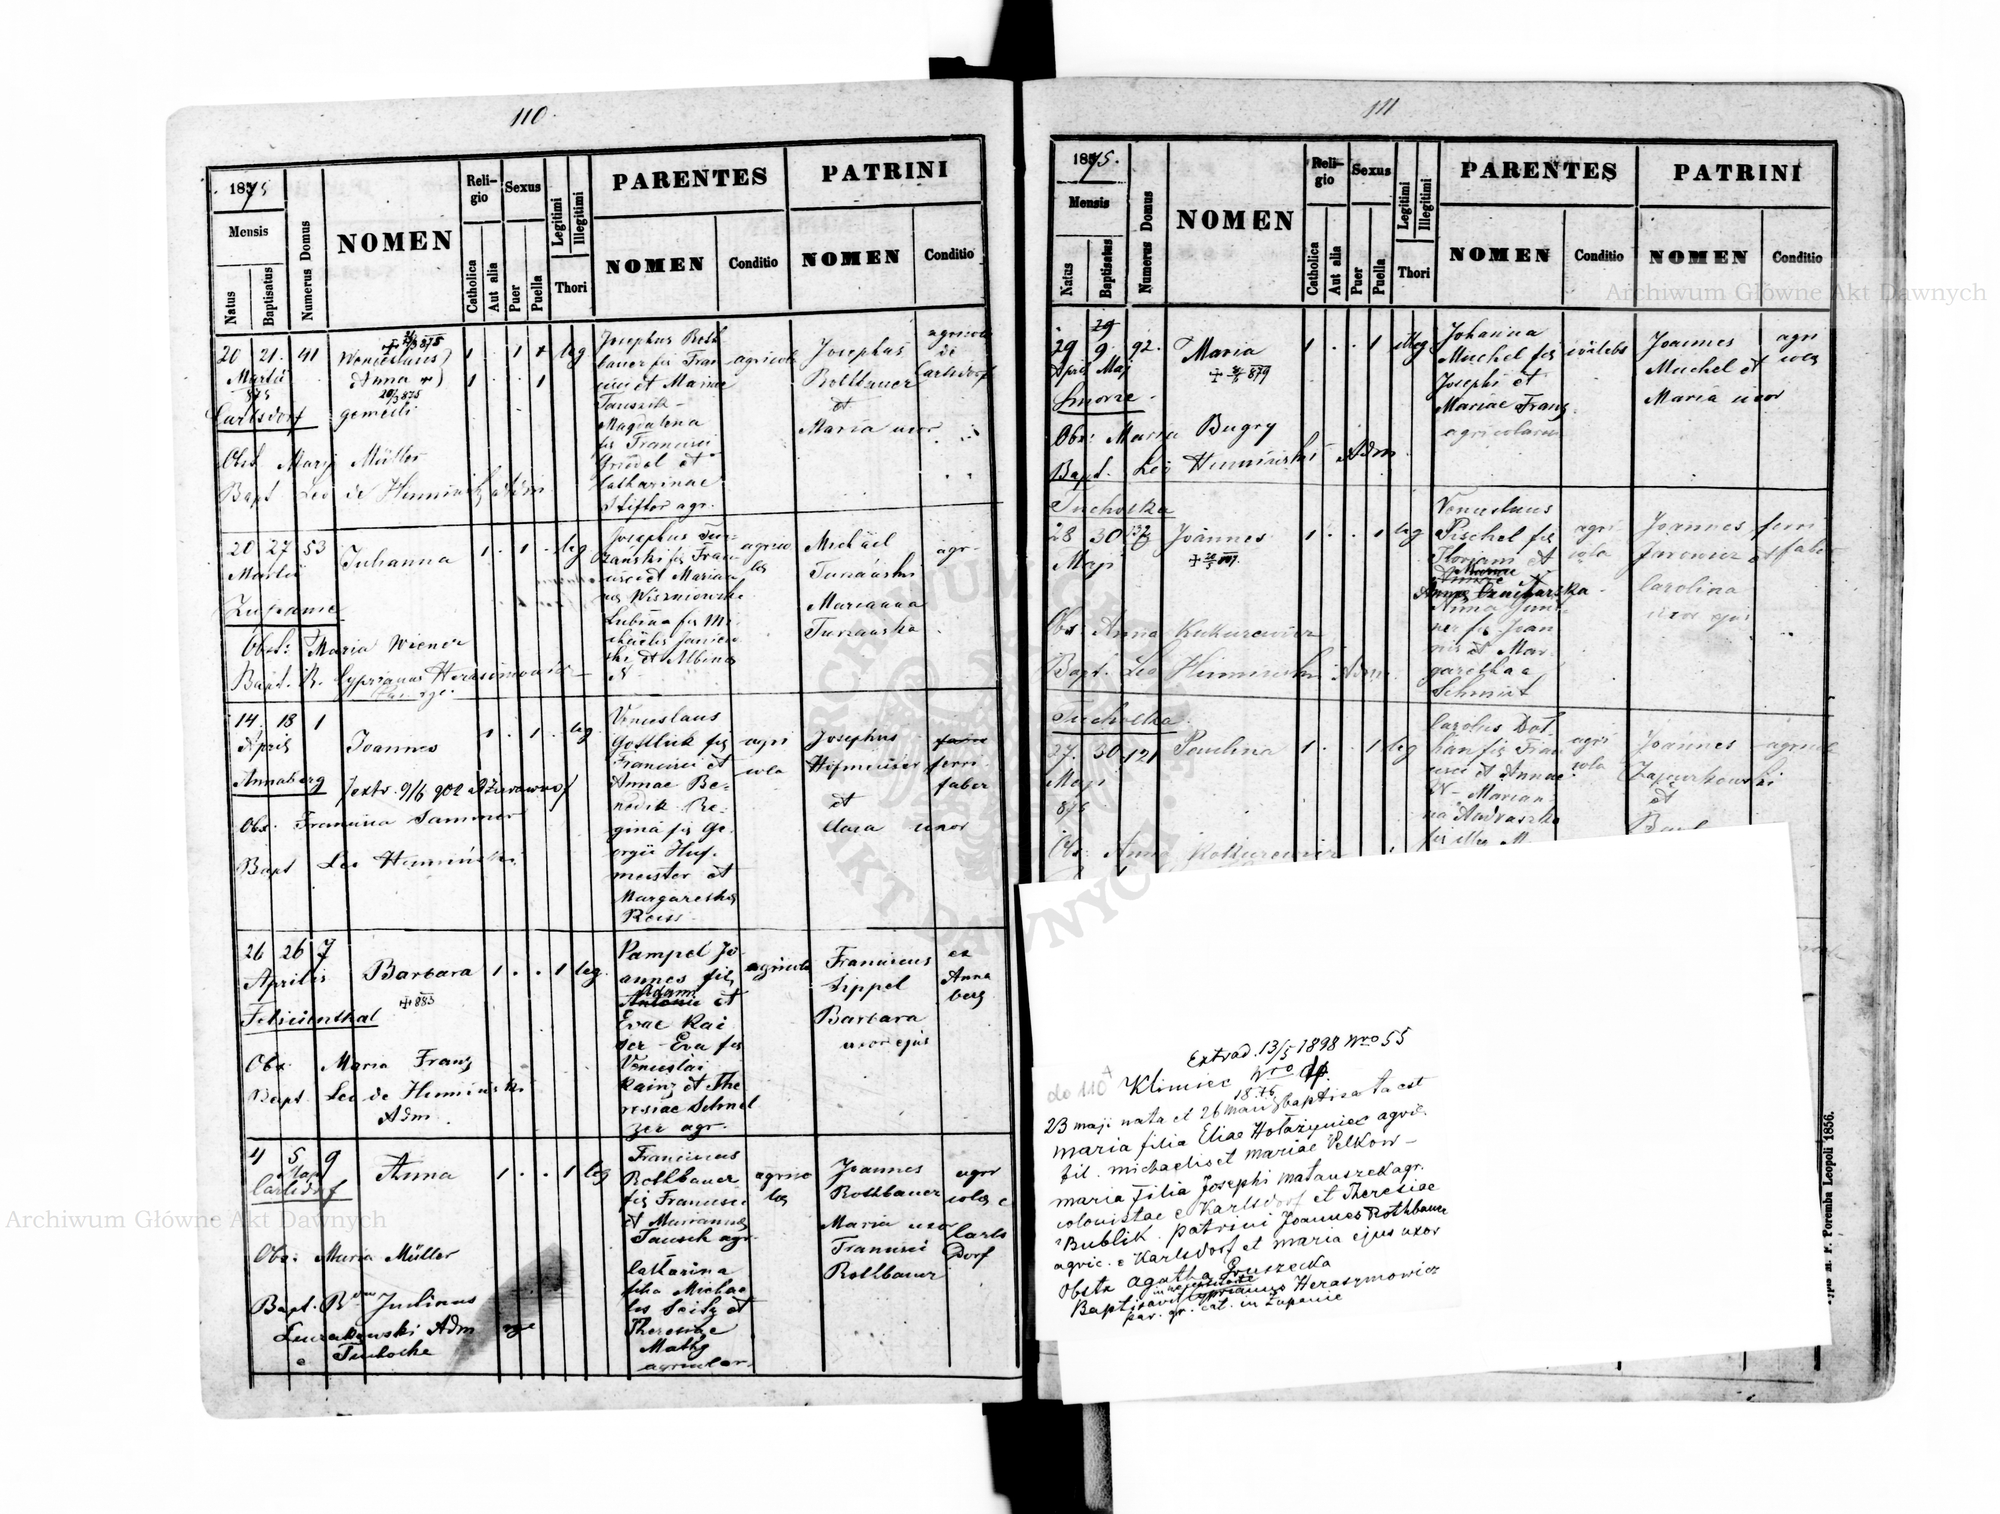 110.
1875
Mensis
Natus
Baptisatus
Numerus Domus
NOMEN
Religio
Catholica
Aut alia
Sexus
Puer
Puella
Legitimi
Illegitimi
Thori
PARENTES
NOMEN
Conditio
PATRINI
NOMEN
Conditio
20 21. 41
Martii
875
Carlsdorf
Venceslaus
Anna
gemelli
1 1
1 1
leg
Josephus Roth
bauer fil Fran
cisci et Mariae
Tauszik -
Magdalena
fil Francisci
Griedl et
Catharinae
Stiftor agr.
agricola
Josephus
Rothbauer
et
Maria uxor
agricola
de
Carlsdorf
Obst. Mary Müller
Bapt Leo de Humiński adm
20 27 53
Martii
Zupanie
Juhanna
1. 1 leg
Josephus Tur
zański fil Fran
cisci et Maria
Wiszniowski
Lubina fil Mi
chaelis
ski et Albina
N
agrico
la
Michael
Turzański
Marianna
Turzańska
agr-
Obst: Maria Wiener
Bapt. R. Cyprianus Herasimowicz
14. 18 1
April
Annaberg
Joannes
1. 1. leg
Venceslaus
Gottlick fil
Francisci et
Annae Be-
nedik Re-
gina fil Ge-
orgii Huf-
meister et
Margaretha
Reiss
agri
cola
Josephus
Hofmeister
et
Clara uxor
ferri
faber
Obs. Francisca Sammer
Bapt Leo Humiński
26 26 7
Aprilis
Felicienthal
Barbara
+ 883
1 . . 1 leg.
Pampel Jo
annes fil
Adami
Antonii et
Evae Kai
ser - Eva fil
Venceslai
Kainz et The
resiae Schmel
zer agr.
agricola
Franciscus
Lippel
Barbara
uxor ejus
ex
Anna
berg
Obs. Maria Franz
Bapt. Leo de Humiński
Adm.
4 5 9
Maji
Carlsdorf
Anna
1 . . 1 leg
Franciscus
Rothbauer
fil Francisci
et Marianna
Tausch agr.
Catharina
filia Michae
lis Seitz et
Theresiae
Matky
agricolar.
agrico
la
Joannes
Rothbauer
Maria uxor
Francisci
Rothbauer
agri
cola e
Carls
Dorf
Obs: Maria Müller
Bapt. Rdus Julianus
Adm
e Tucholka
111
1875.
Mensis
Natus
Baptisatus
Numerus Domus
NOMEN
Religio
Catholica
Aut alia
Sexus
Puer
Puella
Legitimi
Illegitimi
Thori
PARENTES
NOMEN
Conditio
PATRINI
NOMEN
Conditio
29
29 9. 92.
April Maj
Smorze
Maria
1 . . 1 illeg
Johanna
Muchel fil
Josephi et
Mariae Franz
agricolarum
coelebs
Joannes
Muchel et
Maria uxor
agri
cola
Obs: Maria Bugry
Bapt. Leo Humiński Adm
Tucholka
28 30
Maji
Joannes
1 . . 1 leg
Venceslaus
Pischel fil
Floriani et
Anna Jun
ner fil Joan
nis et Mar
garetha
Schmiit
agri
cola
Joannes
Jurowicz et
Carolina
uxor ejus
ferri
faber
Obs: Anna Kukurewicz
Bapt. Leo Humiński Adm.
Tucholka
27. 30 121
Maji
875
Paulina
1 . . 1 leg
Carolus Dot
han fil Fran
cisci et Annae
N - Marian-
na Andraszko
agri
cola
Joannes
Zajączkowski
et
agricola
Obs: Anna Kokurewicz
Extrad. 13/5 1898 Nro 55
do 110
Klimiec Nro
1876
23 maji nata et 26 maii baptisata est
Maria filia Eliae Hołażyniec agric.
fil. Michaelis et Mariae Velkow-
Maria filia Josephi Matauszek agr.
colonistae e Karlsdorf et Theresiae
Bublik. patrini Joannes Rothbauer
agric. e Karlsdorf et Maria ejus uxor
Obstx Agatha Gruszecka
Baptisavit Cyprianus Heraszymowicz
par. gr. cat. in Zupanie
Typis M. F. Poremba Leopoli 1856.
Archiwum Główne Akt Dawnych
Archiwum Główne Akt Dawnych
ARCHIWUM GŁÓWNE AKT DAWNYCH